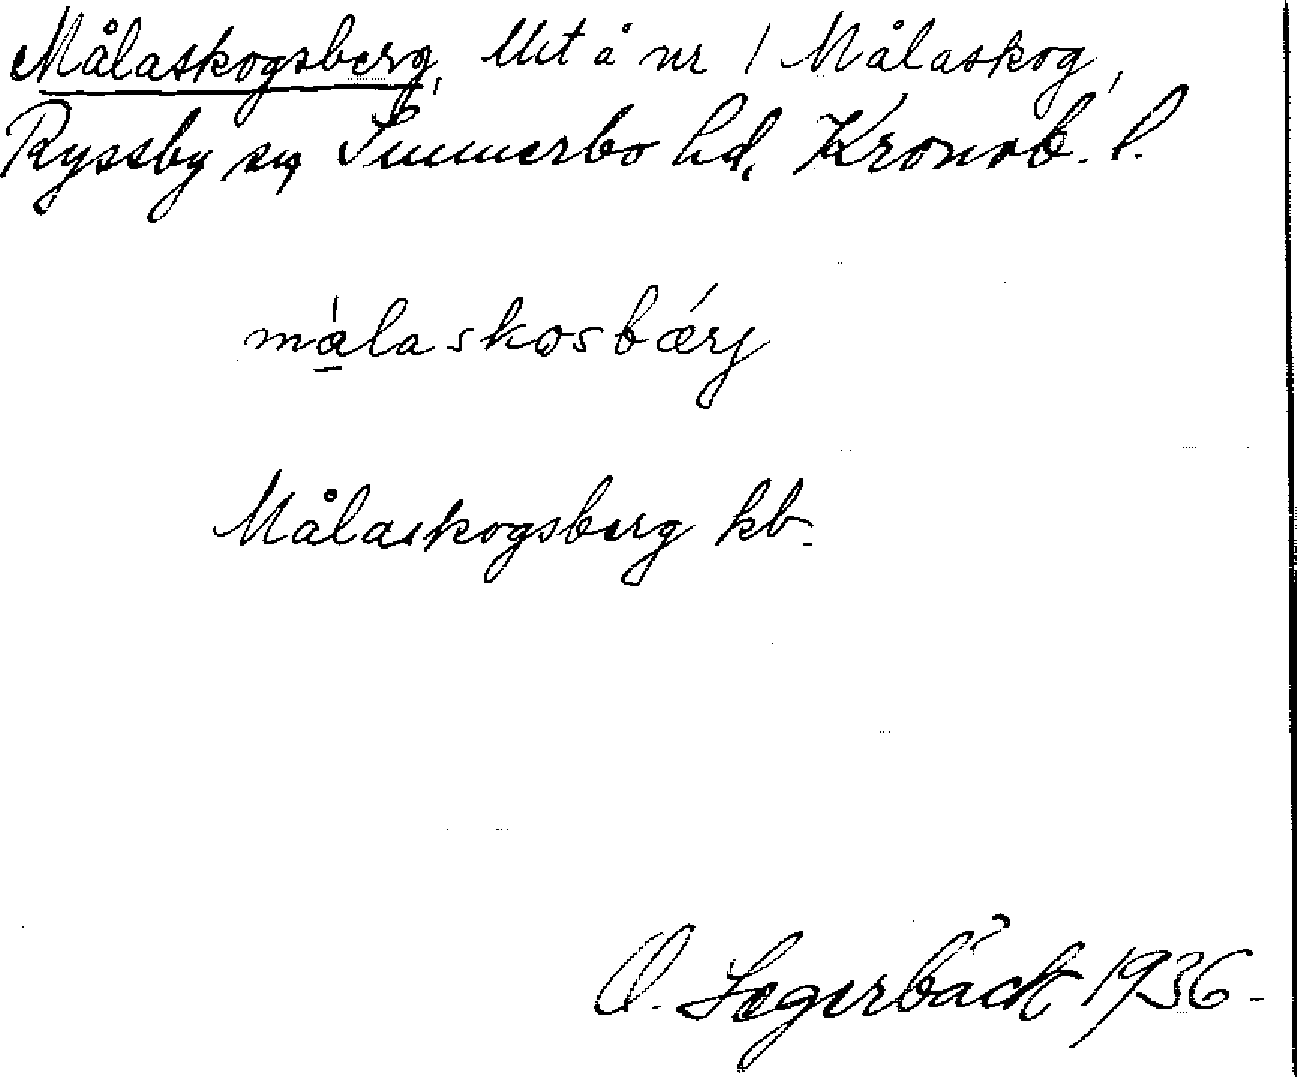 Målaskogsberg, Utå nr 1 Målaskog,
Ryssby sn, Sunnerbo hd, Kronob. l.
målaskosbærj
Målaskogsberg kb.
O. Segerbäck 1936.